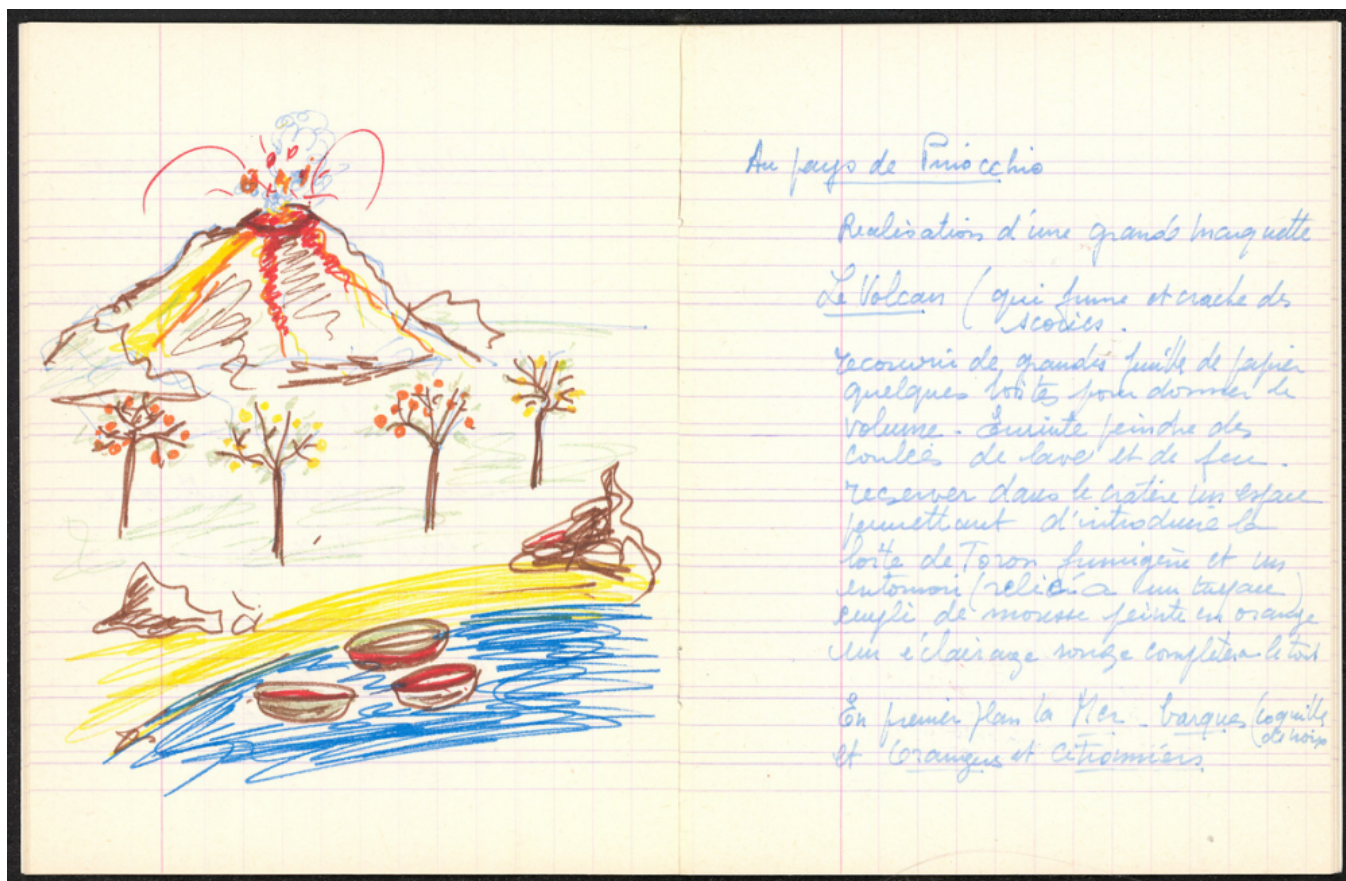 Au pays de Pinocchio
Realisation d'une grande maquette
Le Volcan (qui fume et crache des
scories.
recouvrir de grandes feuille de papier
quelques boites pour donner le
volume - Ensuite peindre des
coulées de lave et de feu.
reserver dans le cratère un espace
permettant d'introduire la
boite de Toron fumigène et un
entonnoir (relié à un tuyau)
empli de mousse peinte en orange
un éclairage rouge complètera le tout
En premier plan la Mer - barques (coquille
de noix
et Oranges et citronniers